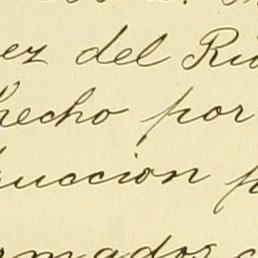 ez del Rio
hecho por
ruccion p
rmados c